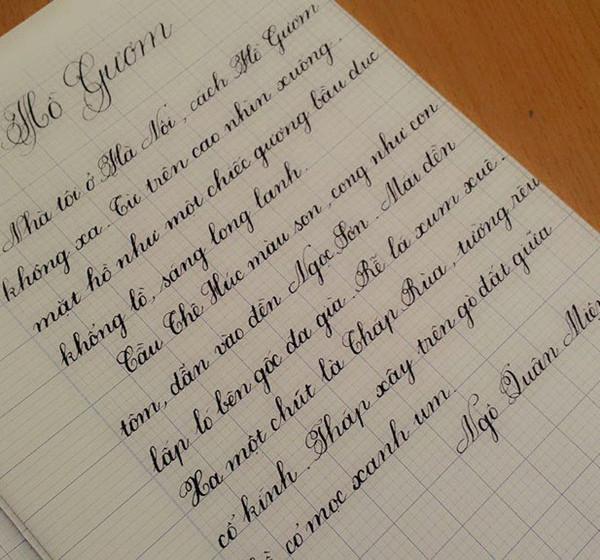 Hồ Gươm
Nhà tôi ở Hà Nội, cách Hồ Gươm
không xa. Từ trên cao nhìn xuống,
mặt hồ như một chiếc gương bầu dục
khổng lồ, sáng long lanh.
Cầu Thê Húc màu son, cong như con
tôm, dẫn vào đền Ngọc Sơn. Mái đền
lấp ló bên gốc đa già. Rễ lá xum xuê.
Xa một chút là Tháp Rùa, tường rêu
cổ kính. Tháp xây trên gò đất giữa
cỏ mọc xanh um.
Ngô Quân Miện